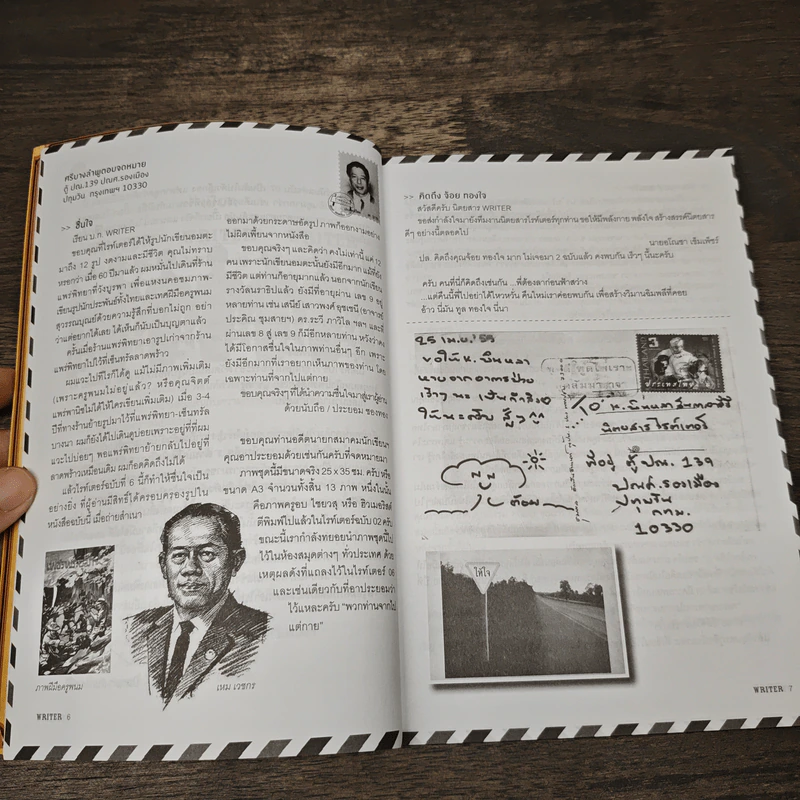 ศรีบางลำพูตอบจดหมาย
ตู้ ปณ.139 ปณศ.รองเมือง
ปทุมวัน กรุงเทพฯ 10330
>> ชื่นใจ
เรียน บ.ก. WRITER
ขอบคุณที่ไรท์เตอร์ได้ให้รูปนักเขียนอมตะ
มาถึง 12 รูป งดงามและมีชีวิต คุณไม่ทราบ
หรอกว่า เมื่อ 60 ปีมาแล้ว ผมหมั่นไปเดินที่ร้าน
แพร่พิทยาที่วังบูรพา เพื่อแหงนคอชมภาพ
เขียนรูปนักประพันธ์ทั้งไทยและเทศฝีมือครูพนม
สุวรรณบุณย์ด้วยความรู้สึกที่บอกไม่ถูก อย่า
ว่าแต่อยากได้เลย ได้เห็นก็นับเป็นบุญตาแล้ว
ครั้นเมื่อร้านแพร่พิทยาเอารูปเก่าจากร้าน
แพร่พิทยาไปไว้ที่เซ็นทรัลลาดพร้าว
ผมแวะไปทีไรก็ได้ดู แม้ไม่มีภาพเพิ่มเติม
(เพราะครูพนมไม่อยู่แล้ว? หรือคุณจิตต์
แพร่พานิชไม่ได้ให้ใครเขียนเพิ่มเติม) เมื่อ 3-4
ปีที่ทางร้านย้ายรูปมาไว้ที่แพร่พิทยา-เซ็นทรัล
บางนา ผมก็ยังได้ไปเดินดูบ่อยเพราะอยู่ที่ที่ผม
แวะไปบ่อยๆ พอแพร่พิทยาย้ายกลับไปอยู่ที่
ลาดพร้าวเหมือนเดิม ผมก็อดคิดถึงไม่ได้
แล้วไรท์เตอร์ฉบับที่ 6 นี้ก็ทำให้ชื่นใจเป็น
อย่างยิ่ง ที่ผู้อ่านมีสิทธิ์ได้ครอบครองรูปใน
หนังสือฉบับนี้ เมื่อถ่ายสำเนา
ออกมาด้วยกระดาษอัดรูป ภาพก็ออกงามอย่าง
ไม่ผิดเพี้ยนจากหนังสือ
ขอบคุณจริงๆ และคิดว่า คงไม่เท่านี้ แค่ 12
คน เพราะนักเขียนอมตะนั้นยังมีอีกมาก แม้ที่ยัง
มีชีวิต แต่ท่านก็อายุมากแล้ว นอกจากนักเขียน
รางวัลนราธิปแล้ว ยังมีที่อายุผ่าน เลข 9 อยู่
หลายท่าน เช่น เสนีย์ เสาวพงศ์ อุชเชนี (อาจารย์
ประคิณ ชุมสายฯ) ดร.ระวี ภาวิไล ฯลฯ และที่
ผ่านเลข 8 สู่ เลข 9 ก็มีอีกหลายท่าน หวังว่าคง
ได้มีโอกาสชื่นใจในภาพท่านอื่นๆ อีก เพราะ
ยังมีอีกมากที่เราอยากเห็นภาพของท่าน โดย
เฉพาะท่านที่จากไปแต่กาย
ขอบคุณจริงๆ ที่ได้นำความชื่นใจมาสู่เราผู้อ่าน
ด้วยนับถือ / ประยอม ซองทอง
ขอบคุณท่านอดีตนายกสมาคมนักเขียนฯ
คุณอาประยอมด้วยเช่นกันครับที่จดหมายมา
ภาพชุดนี้มีขนาดจริง 25 x 35 ซม. ครับ หรือ
ขนาด A3 จำนวนทั้งสิ้น 13 ภาพ หนึ่งในนั้น
คือภาพครูอบ ไชยวสุ หรือ ฮิวเมอริสต์
ตีพิมพ์ไปแล้วในไรท์เตอร์ฉบับ 02 ครับ
ขณะนี้เรากำลังทยอยนำภาพชุดนี้ไป
ไว้ในห้องสมุดต่างๆ ทั่วประเทศ ด้วย
เหตุผลดังที่แถลงไว้ในไรท์เตอร์ 06
และเช่นเดียวกับที่อาประยอมว่า
ไว้แหละครับ “พวกท่านจากไป
แต่กาย”
ภาพฝีมือครูพนม
เหม เวชกร
WRITER 6
>> คิดถึง จ้อย ทองใจ
สวัสดีครับ นิตยสาร WRITER
ขอส่งกำลังใจมายังทีมงานนิตยสารไรท์เตอร์ทุกท่าน ขอให้มีพลังกาย พลังใจ สร้างสรรค์นิตยสาร
ดีๆ อย่างนี้ตลอดไป
นายอโณชา เชิมเพ็ชร์
ปล. คิดถึงคุณจ้อย ทองใจ มาก ไม่เจอมา 2 ฉบับแล้ว คงพบกัน เร็วๆ นี้นะครับ
ครับ คนที่นี่ก็คิดถึงเช่นกัน ...พี่ต้องลาก่อนฟ้าสว่าง
...แต่คืนนี้พี่ไปอย่าได้ไหวหวั่น คืนใหม่เราค่อยพบกัน เพื่อสร้างวิมานชิมพลีที่คอย
อ้าว นี่มัน ทูล ทองใจ นี่นา
25 เม.ย. '55
ขอให้
หายจากอาการป่วย
เร็วๆ นะ
สู้ๆ ^^
3
ประเทศไทย
นิตยสารไรท์เตอร์
ที่อยู่ ตู้ ปณ. 139
ปณศ. รองเมือง
ปทุมวัน
กทม.
10330
ให้ใจ
WRITER 7